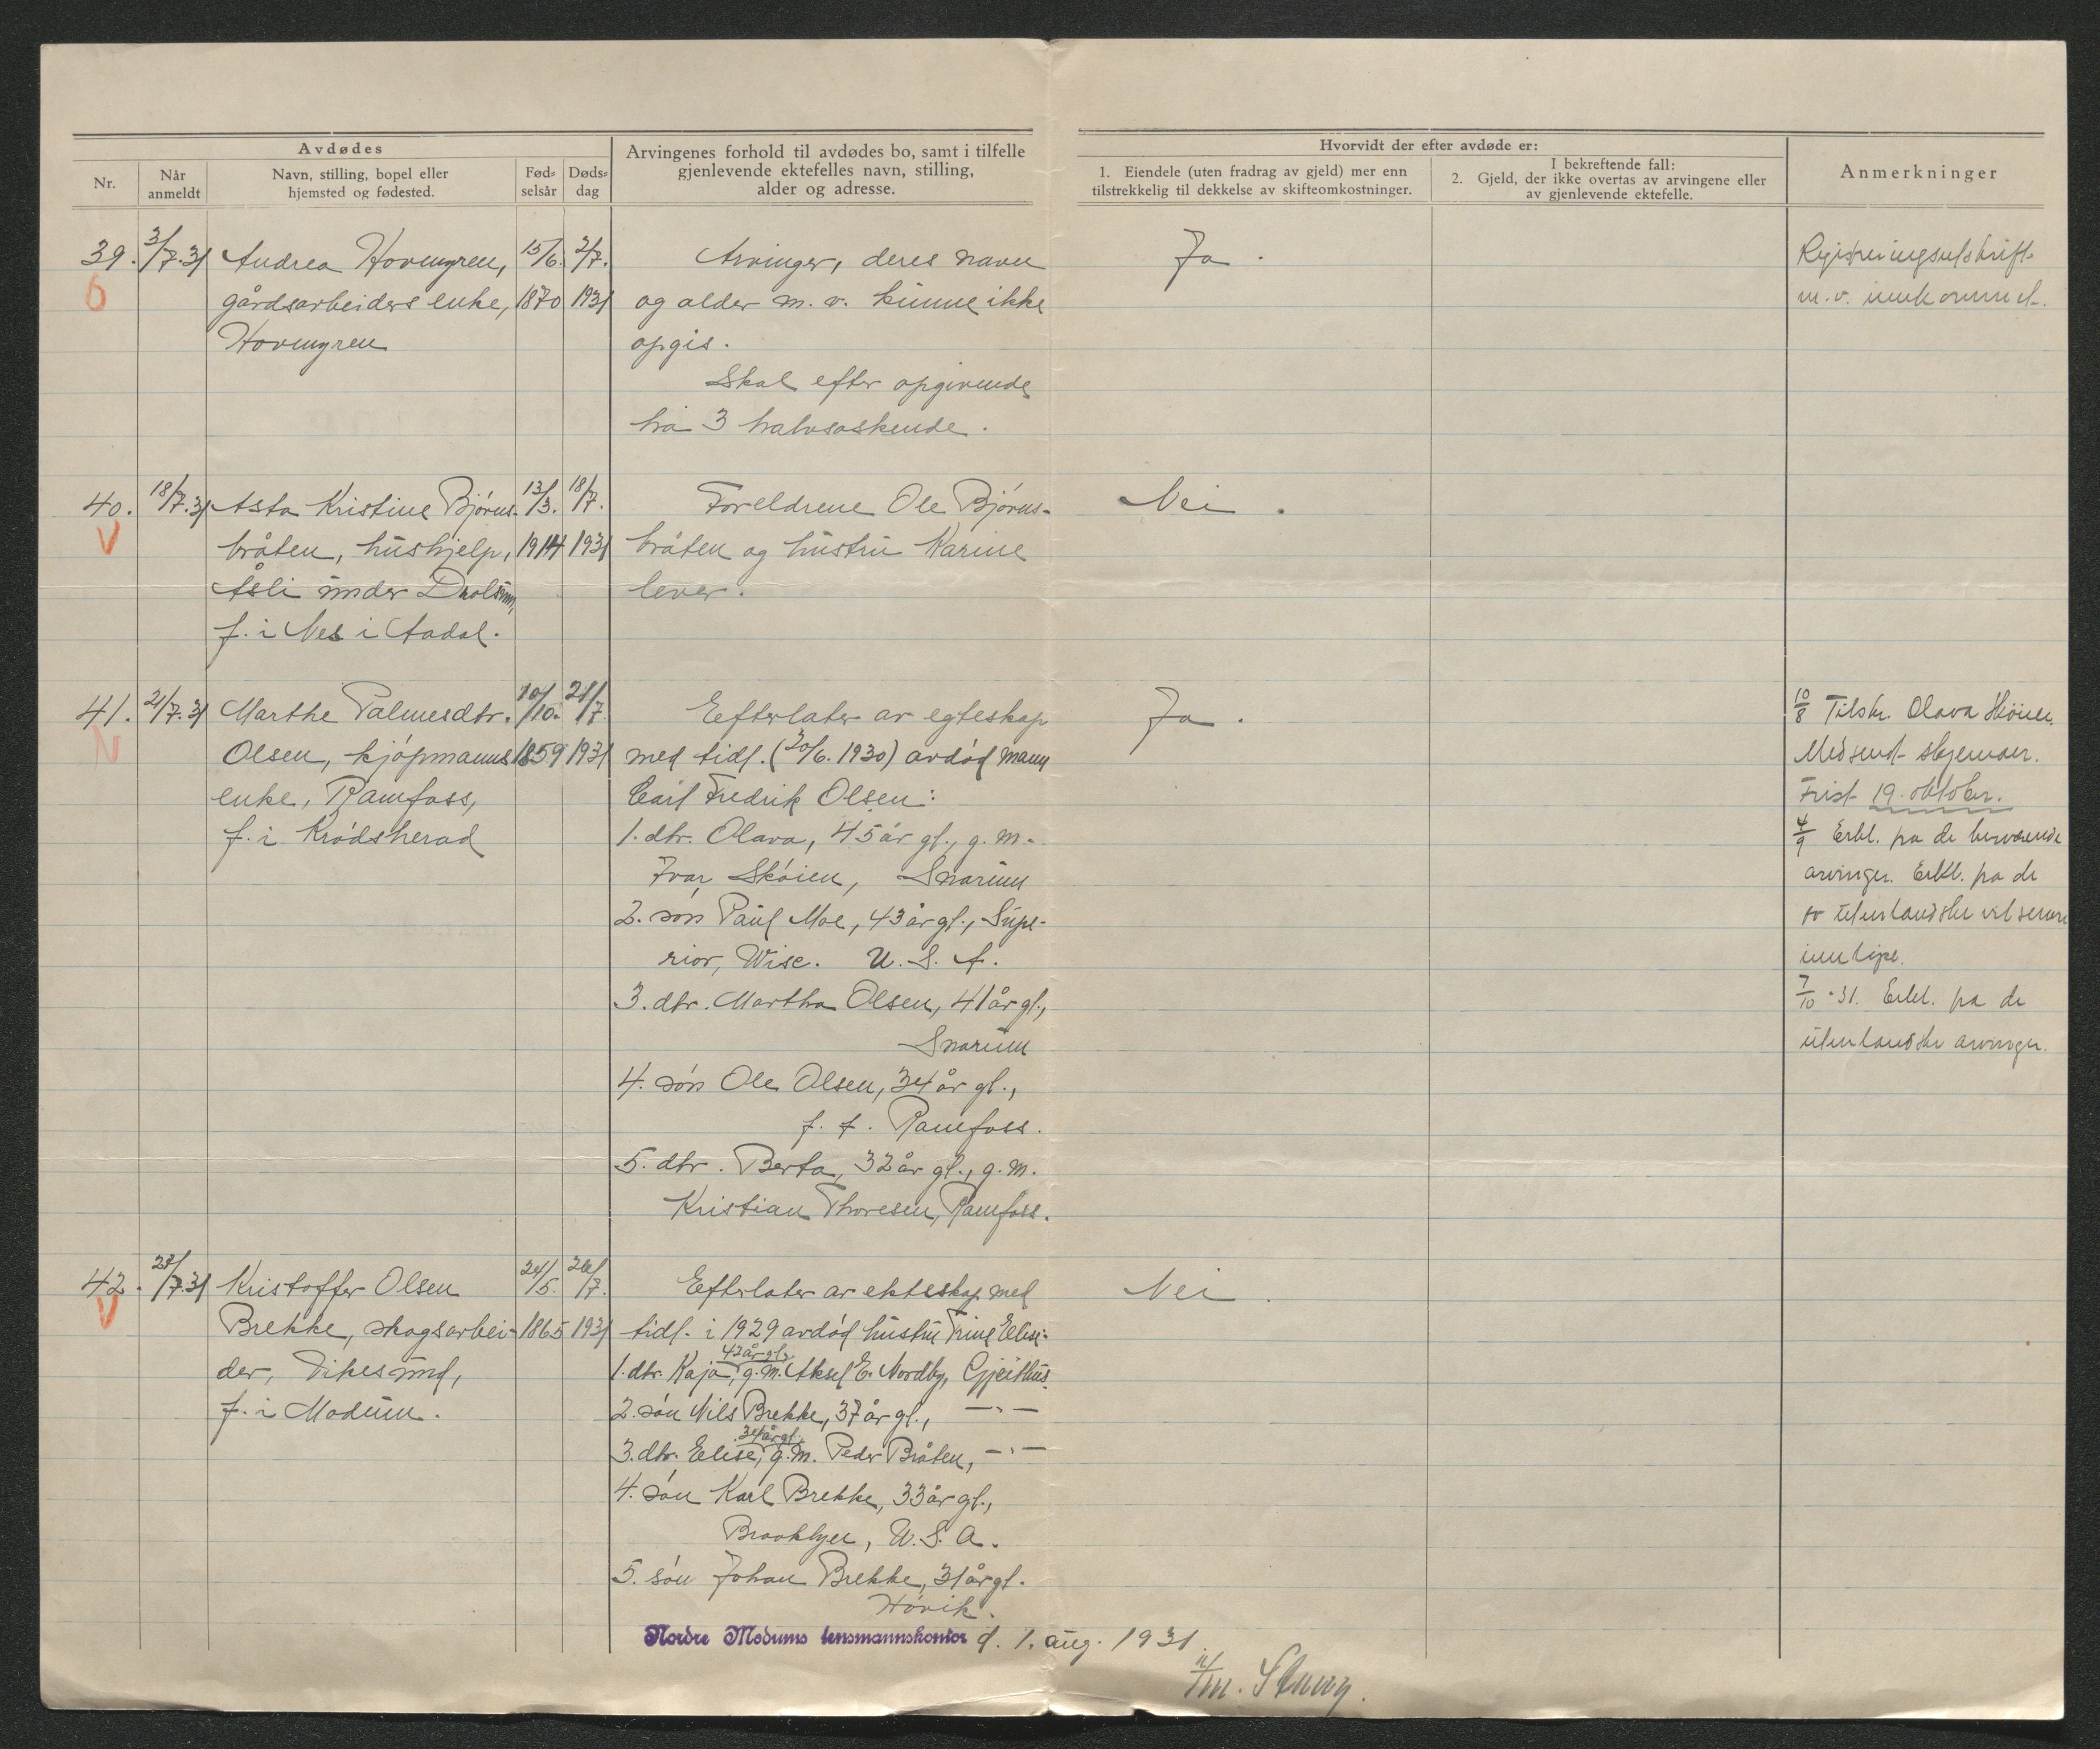 Avdødes
Nr.
Når
anmeldt
Navn, stilling, bopel eller
hjemsted og fødested.
Fød-
selsår
Døds-
dag
Arvingenes forhold til avdødes bo, samt i tilfelle
gjenlevende ektefelles navn, stilling,
alder og adresse.
Hvorvidt der efter avdøde er:
1. Eiendele (uten fradrag av gjeld) mer enn
tilstrekkelig til dekkelse av skifteomkostninger.
I bekreftende fall:
2. Gjeld, der ikke overtas av arvingene eller
av gjenlevende ektefelle.
Anmerkninger
39. 3/7.31 Andrea Hovmyren, 15/6. 2/7.
6 gårdsarbeiders enke, 1870 1931
Hovmyren
Arvinger, deres navn
og alder m. v. kunne ikke
opgis.
Skal efter opgivende
ha 3 halvsøskende.
Ja.
Registreringsutskrift
m. v. innkommet.
40. 18/7.31 Asta Kristine Bjørns- 13/3. 18/7.
V bråten, hushjelp, 1914 1931
Åsli under Drolsum,
f. i Nes i Aadal.
Foreldrene Ole Bjørns-
bråten og hustru Karine
lever.
Nei.
41. 21/7.31 Marthe Palmesdtr. 10/10. 21/7.
N Olsen, kjøpmanns 1859 1931
enke, Ramfoss,
f. i Krødsherad
Eefterlater av egteskap
med tidl. (20/6. 1930) avdød mann
Carl Fredrik Olsen:
1. dtr. Olava, 45 år gl., g. m.
Ivar Skøien, Snarum
2. søn Paul Moe, 43 år gl., Supe-
rior, Wisc. U. S. A.
3. dtr. Martha Olsen, 41 år gl.,
Snarum
4. søn Ole Olsen, 34 år gl.,
f. t. Ramfoss.
5. dtr. Berta, 32 år gl., g. m.
Kristian Thoresen, Ramfoss.
Ja.
10/8 Tilskr. Olava Skøien.
Medsendt skjemaer.
Frist 19. oktober.
4/9 Erkl. fra de herværende
arvinger. Erkl. fra de
utenlandske vil senere
innkomme.
7/10 - 31. Erkl. fra de
utenlandske arvinger.
42. 28/7.31 Kristoffer Olsen 24/5. 26/7.
V Brekke, skogsarbei- 1865 1931
der, Vikesund,
f. i Modum.
Eefterlater av ekteskap med
tidl. i 1929 avdød hustru Trine Elise:
1. dtr. Kaja, 42 år gl., g. m. Aksel E. Nordby, Gjeithus
2. søn Nils Brekke, 37 år gl., —"—
3. dtr. Elise, 34 år gl., g. m. Peder Bråten, —"—
4. søn Karl Brekke, 33 år gl.,
Brooklyn, U. S. A.
5. søn Johan Brekke, 31 år gl.
Høvik.
Nei.
Nordre Modums lensmannskontor d. 1. aug. 1931.